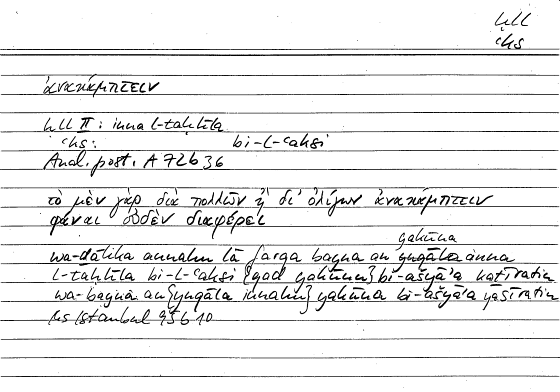 ḥll
ʿks
ἀνακάμπτειν
ḥll II: inna l-taḥlīla
ʿks: bi-l-ʿaksi
Anal. post. A 72b36
τὸ μὲν γὰρ διὰ πολλῶν ἢ δι' ὀλίγων ἀνακάμπτειν
φάναι οὐδὲν διαφέρει
yakūna
wa-ḏālika annahu lā farqa bayna an yuqāla inna
l-taḥlīla bi-l-ʿaksi {qad yakūnu} bi-ašyāʾa kaṯīratin
wa-bayna an {yuqāla innahu} yakūna bi-ašyāʾa yasīratin
Hs Istanbul 95b10